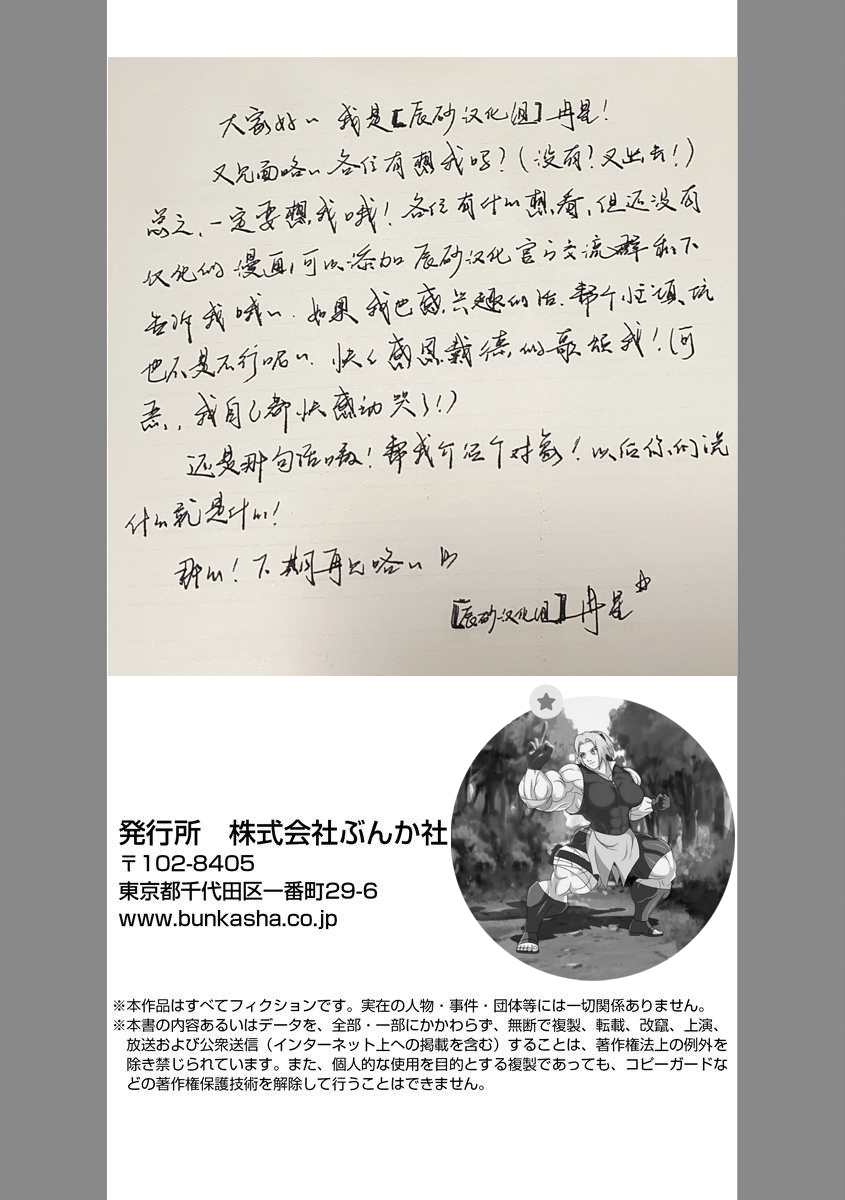 大家好~ 我是【辰砂汉化组】冉星!
又见面咯~各位有想我吗?(没有?叉出去!)
总之,一定要想我哦!各位有什么想看,但还没有
汉化的漫画,可以添加辰砂汉化官方交流群私下
告诉我哦~.如果我也感兴趣的话.帮个忙填坑
也不是不行呢~.快快感恩戴德的歌颂我!(可
恶,我自己都快感动哭了!)
还是那句话嗷!帮我介绍个对象!以后你们说
什么就是什么!
那么!下期再见咯~
【辰砂汉化组】冉星
発行所 株式会社ぶんか社
〒102-8405
東京都千代田区一番町29-6
www.bunkasha.co.jp
※本作品はすべてフィクションです。実在の人物・事件・団体等には一切関係ありません。
※本書の内容あるいはデータを、全部・一部にかかわらず、無断で複製、転載、改竄、上演、
放送および公衆送信(インターネット上への掲載を含む)することは、著作権法上の例外を
除き禁じられています。また、個人的な使用を目的とする複製であっても、コピーガードな
どの著作権保護技術を解除して行うことはできません。